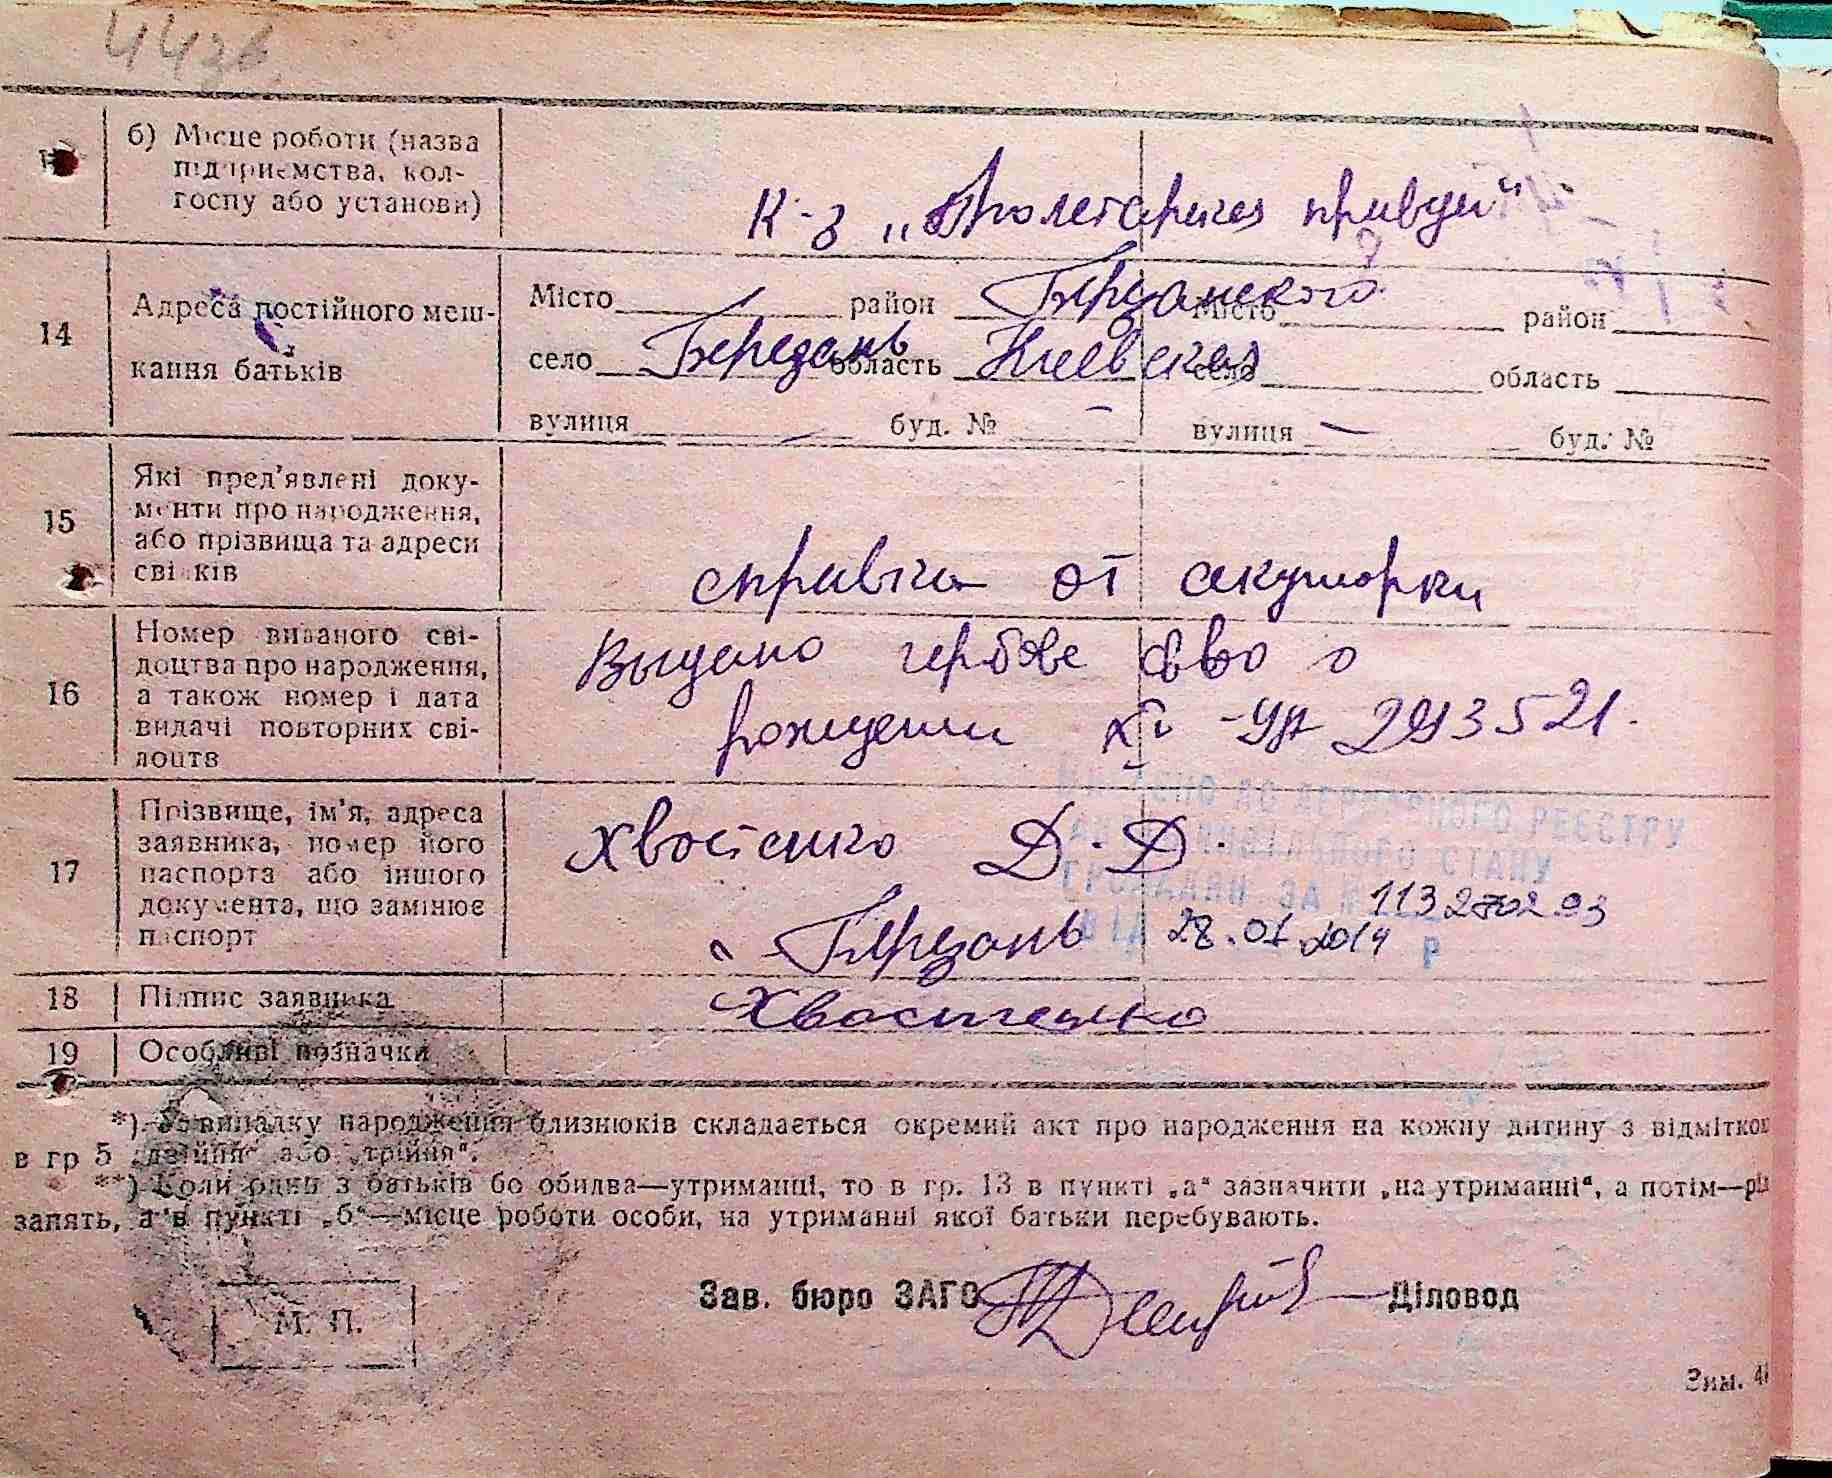 44зв.
б) Місце роботи (назва
підприємства, кол-
госпу або установи)
К-з „Пролетарская правда"
14
Адреса постійного меш-
кання батьків
Місто район Березанского Місто район
село Березань область Киевская село область
вулиця — буд. № — вулиця — буд. №
15
Які пред'явлені доку-
менти про народження,
або прізвища та адреси
свідків
справка от акушорки
16
Номер виданого сві-
доцтва про народження,
а також номер і дата
видачі повторних сві-
доцтв
Выдано гербове св-во о
рождении 293521.
17
Прізвище, ім'я, адреса
заявника, номер його
паспорта або іншого
документа, що замінює
паспорт
Хвостенко Д. Д.
Березань
ДО ДЕРЖАВНОГО РЕЄСТРУ
АКТІВ ЦИВІЛЬНОГО СТАНУ
ГРОМАДЯН ЗА №
ВІД 28.01.2014 р
18
Підпис заявника
Хвостенко
19
Особливі позначки
*) У випадку народження близнюків складається окремий акт про народження на кожну дитину з відміткою
в гр 5 „двійня" або „трійня".
**) Коли один з батьків бо обидва—утриманці, то в гр. 13 в пункті „а" зазначити „на утриманні", а потім—рід
занять, а в пункті „б"—місце роботи особи, на утриманні якої батьки перебувають.
Зав. бюро ЗАГС Діловод
М. П.
Зим. 4